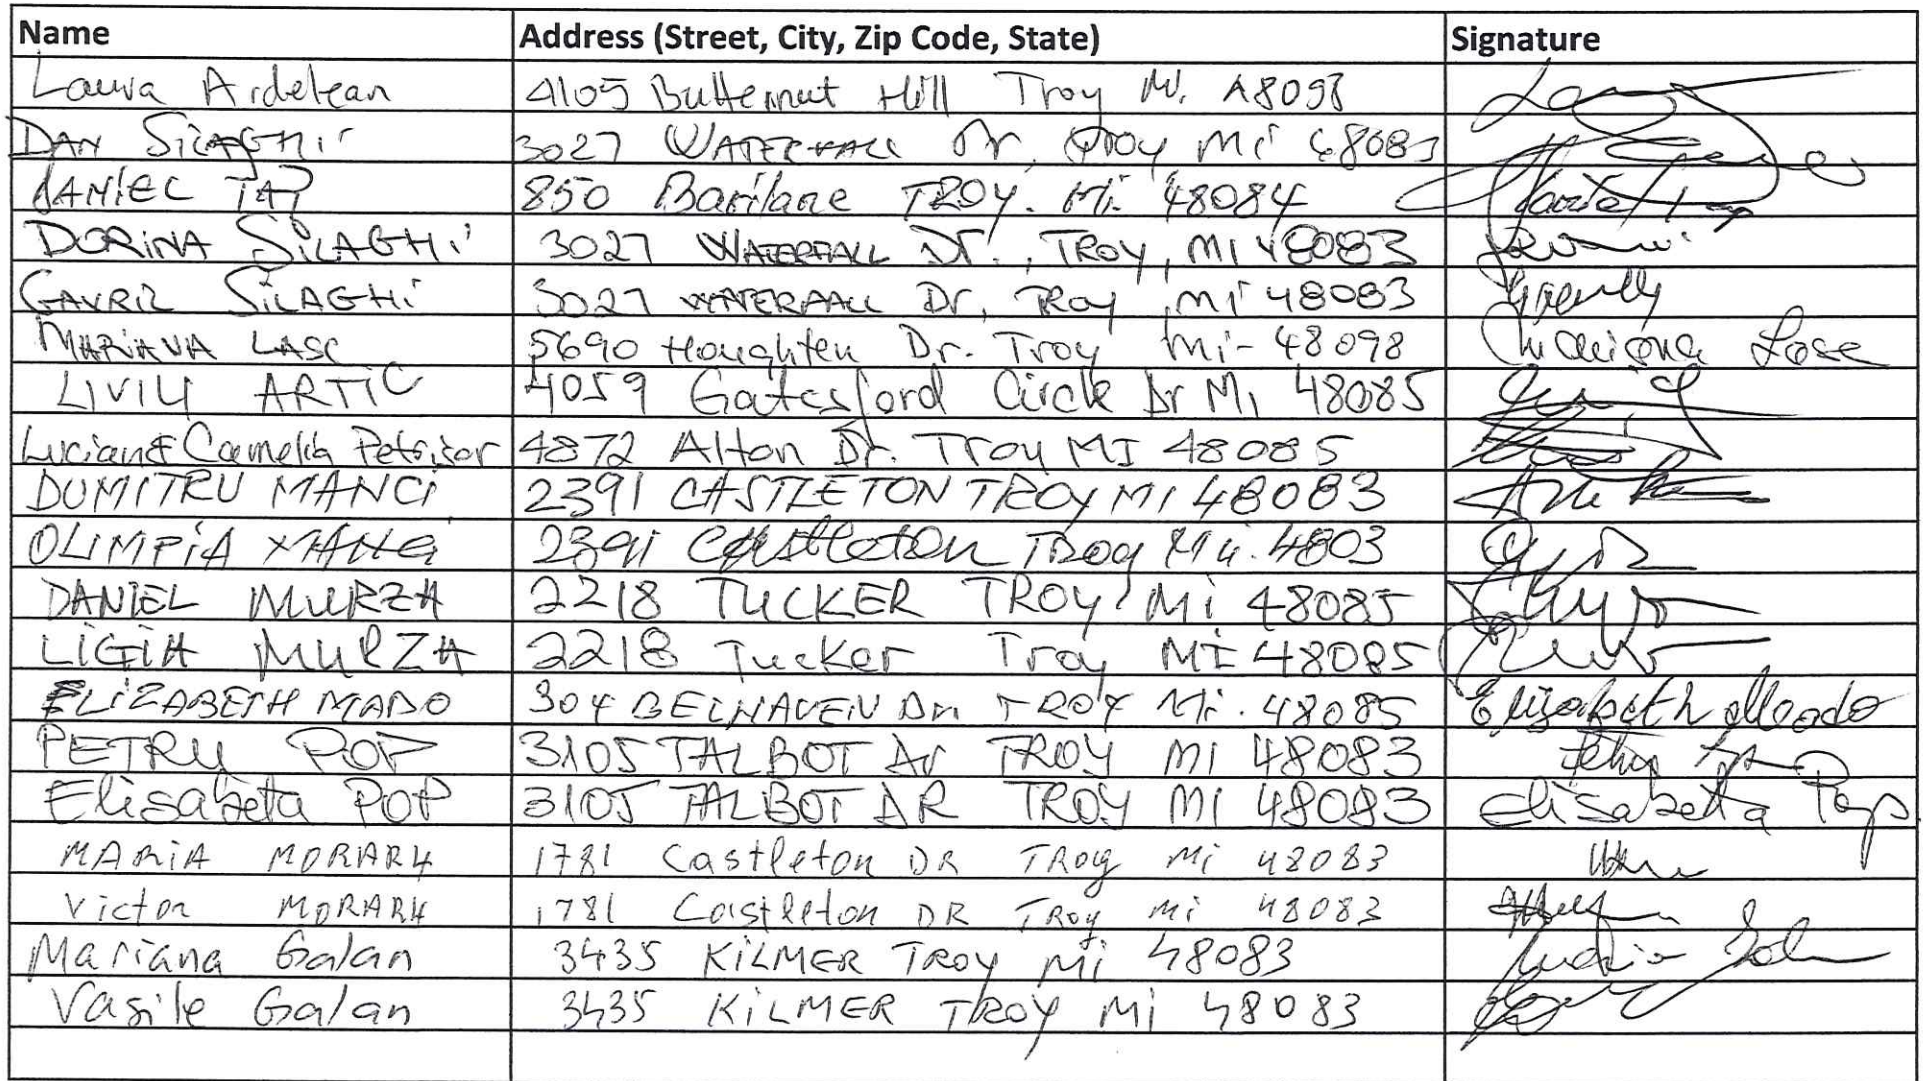 Name Address (Street, City, Zip Code, State) Signature
Laura Ardelean 4105 Butternut Hill Troy Mi. 48098
DAN SILAGHI 3027 WATERFALL Dr, Troy Mi 48083
DANIEL TAP 850 Barilane TROY. Mi. 48084
DORINA SILAGHI 3027 WATERFALL Dr., TROY, MI 48083
GAVRIL SILAGHI 3027 WATERFALL Dr, TRoy, Mi 48083
MARIANA LASC 5690 Houghten Dr. Troy Mi- 48098 Mariana Lasc
LIVIU ARTIC 4059 Gatesford Circle Dr Mi 48085
Lucian & Camelia Petrisor 4872 Alton Dr. Troy MI 48085
DUMITRU MANCI 2391 CASTLETON TROY MI 48083
OLIMPIA 2391 Castleton Troy Mi. 4803
DANIEL MURZA 2218 TUCKER TROY, Mi 48085
LIGIA MURZA 2218 Tucker Troy MI 48085
ELIZABETH MADO 304 BELHAVEN Dr TROY Mi. 48085 Elizabeth Mado
PETRU POP 3105 TALBOT Dr TROY MI 48083
Elisabeta POP 3105 TALBOT DR TROY MI 48083 Elisabeta Pop
MARIA MORARU 1781 Castleton DR TROY Mi 48083
Victor MORARU 1781 Castleton DR TROY Mi 48083
Mariana Galan 3435 KILMER TROY Mi 48083
Vasile Galan 3435 KILMER TROY Mi 48083